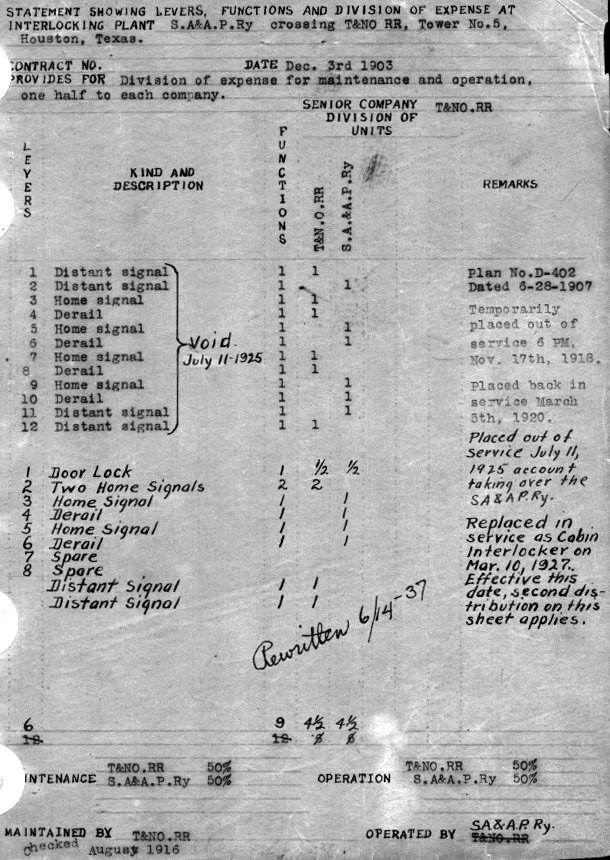 STATEMENT SHOWING LEVERS, FUNCTIONS AND DIVISION OF EXPENSE AT
INTERLOCKING PLANT S.A&A.P.Ry crossing T&NO RR, Tower No.5,
Houston, Texas.
CONTRACT NO. DATE Dec. 3rd 1903
PROVIDES FOR Division of expense for maintenance and operation,
one half to each company.
SENIOR COMPANY T&NO.RR
DIVISION OF
UNITS
LEVERS KIND AND DESCRIPTION FUNCTIONS T&N.O.RR S.A.&A.P.Ry REMARKS
1 Distant signal 1 1 Plan No.D-402
2 Distant signal 1 1 Dated 6-28-1907
3 Home signal 1 1
4 Derail 1 1 Temporarily
5 Home signal 1 1 placed out of
6 Derail 1 1 service 6 PM,
Void.
July 11-1925
7 Home signal 1 1 Nov. 17th, 1918.
8 Derail 1 1
9 Home signal 1 1 Placed back in
10 Derail 1 1 service March
11 Distant signal 1 1 5th, 1920.
12 Distant signal 1 1
Placed out of
service July 11,
1 Door Lock 1 1/2 1/2 1925 account
2 Two Home Signals 2 2 taking over the
3 Home Signal 1 1 SA&AP.Ry.
4 Derail 1 1
5 Home Signal 1 1 Replaced in
6 Derail 1 1 service as Cabin
7 Spare Interlocker on
8 Spare Mar. 10, 1927.
Distant Signal 1 1 Effective this
Distant Signal 1 1 date, second dis-
tribution on this
sheet applies.
Rewritten 6/14-37
6 9 4½ 4½
12 12 6 6
MAINTENANCE T&NO.RR 50% OPERATION T&NO.RR 50%
S.A&A.P.Ry 50% S.A&A.P.Ry 50%
MAINTAINED BY T&NO.RR OPERATED BY SA&A.P. Ry.
T&NO.RR
Checked August 1916